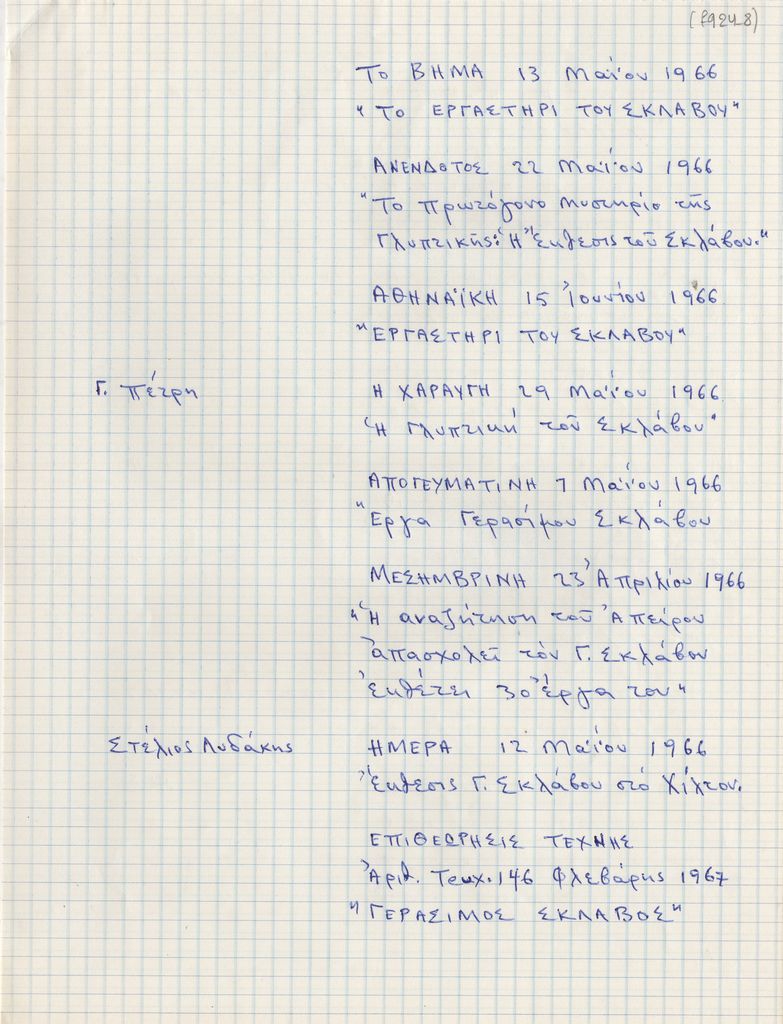 (f924_8)
Το ΒΗΜΑ 13 Μαΐου 1966
"Το ΕΡΓΑΣΤΗΡΙ ΤΟΥ ΣΚΛΑΒΟΥ"
ΑΝΕΝΔΟΤΟΣ 22 Μαΐου 1966
"Το πρωτόγονο μυστήριο τῆς
Γλυπτικῆς: Ἡ Ἔκθεσις τοῦ Σκλάβου."
ΑΘΗΝΑΪΚΗ 15 Ἰουνίου 1966
"ΕΡΓΑΣΤΗΡΙ ΤΟΥ ΣΚΛΑΒΟΥ"
Γ. Πέτρη Η ΧΑΡΑΥΓΗ 29 Μαΐου 1966
Ἡ Γλυπτική τοῦ Σκλάβου"
ΑΠΟΓΕΥΜΑΤΙΝΗ 7 Μαΐου 1966
"Εργα Γερασίμου Σκλάβου
ΜΕΣΗΜΒΡΙΝΗ 23 Ἀπριλίου 1966
"Ἡ αναζήτηση τοῦ Ἀπείρου
ἀπασχολεῖ τὸν Γ. Σκλάβου
ἐκθέτει 30 ἔργα του"
Στέλιος Λυδάκης ΗΜΕΡΑ 12 Μαΐου 1966
Ἔκθεσις Γ. Σκλάβου στό Χίλτον.
ΕΠΙΘΕΩΡΗΣΙΣ ΤΕΧΝΗΣ
Ἀριθ. Τευχ. 146 Φλεβάρης 1967
"ΓΕΡΑΣΙΜΟΣ ΣΚΛΑΒΟΣ"